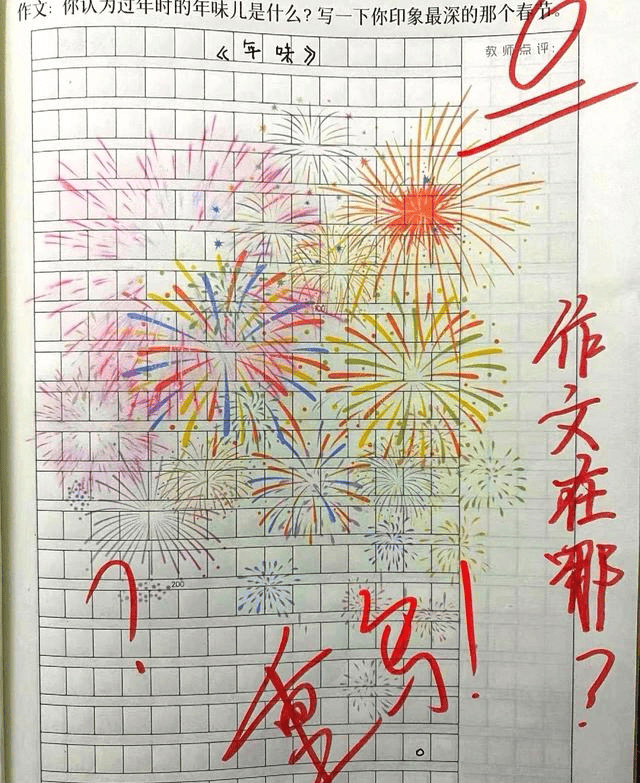 作文：你认为过年时的年味儿是什么？写一下你印象最深的那个春节。
《年味》
教师点评：
0
100
作文在哪？
200
？
重写！
。